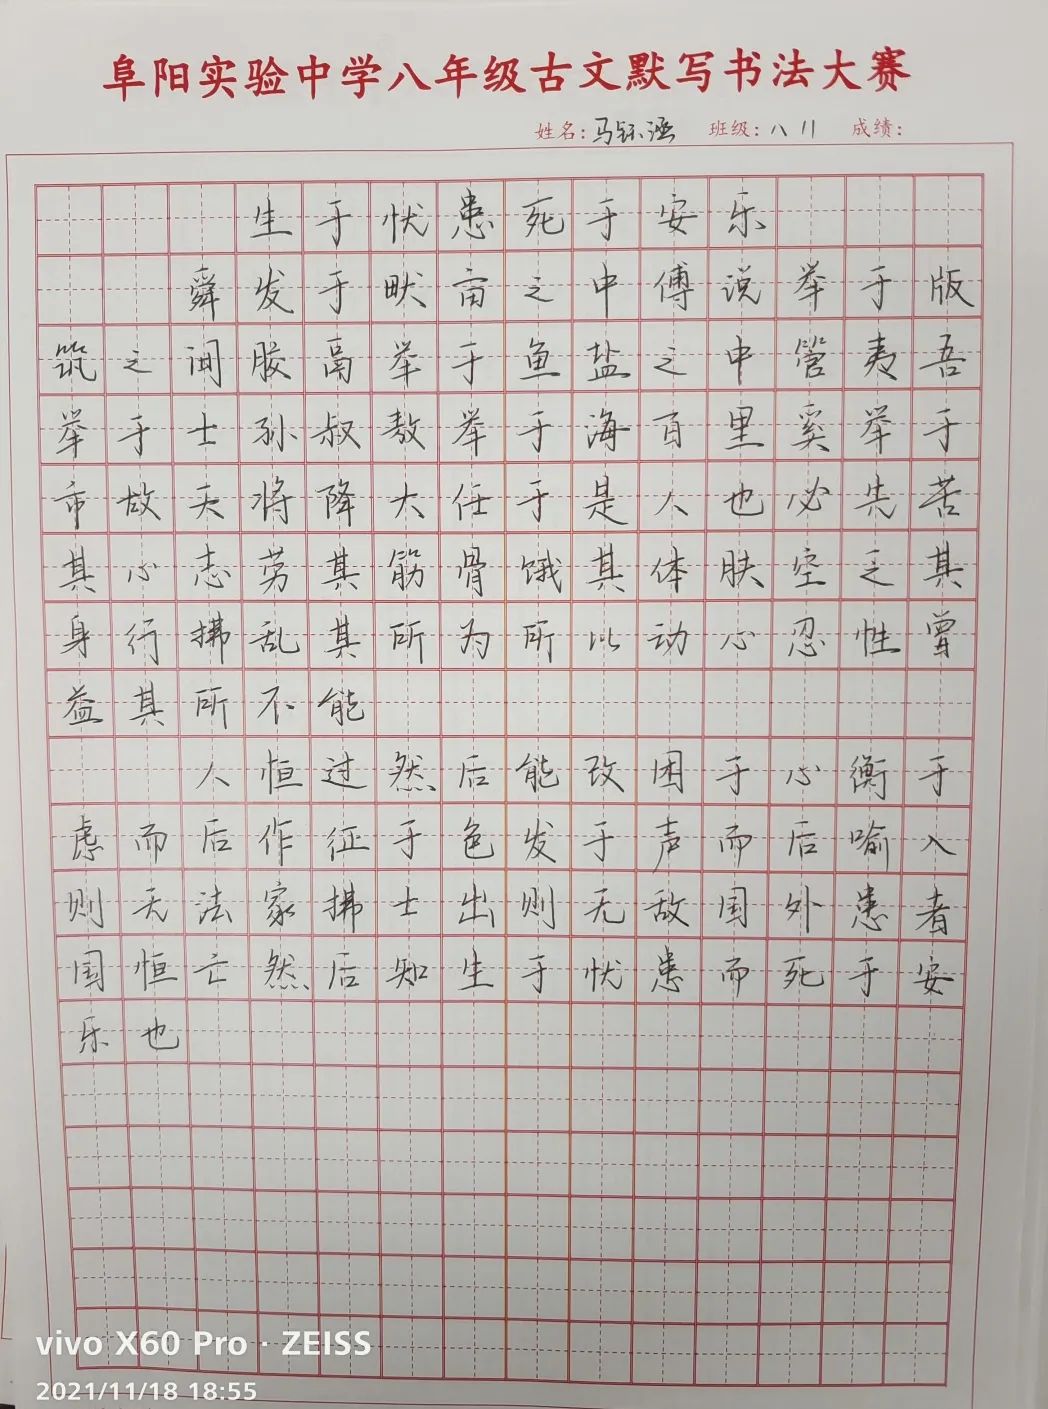 阜阳实验中学八年级古文默写书法大赛
姓名：马钰涵 班级：八11 成绩：
生于忧患死于安乐
舜发于畎亩之中傅说举于版
筑之间胶鬲举于鱼盐之中管夷吾
举于士孙叔敖举于海百里奚举于
市故天将降大任于是人也必先苦
其心志劳其筋骨饿其体肤空乏其
身行拂乱其所为所以动心忍性曾
益其所不能
人恒过然后能改困于心衡于
虑而后作征于色发于声而后喻入
则无法家拂士出则无敌国外患者
国恒亡然后知生于忧患而死于安
乐也
vivo X60 Pro · ZEISS
2021/11/18 18:55